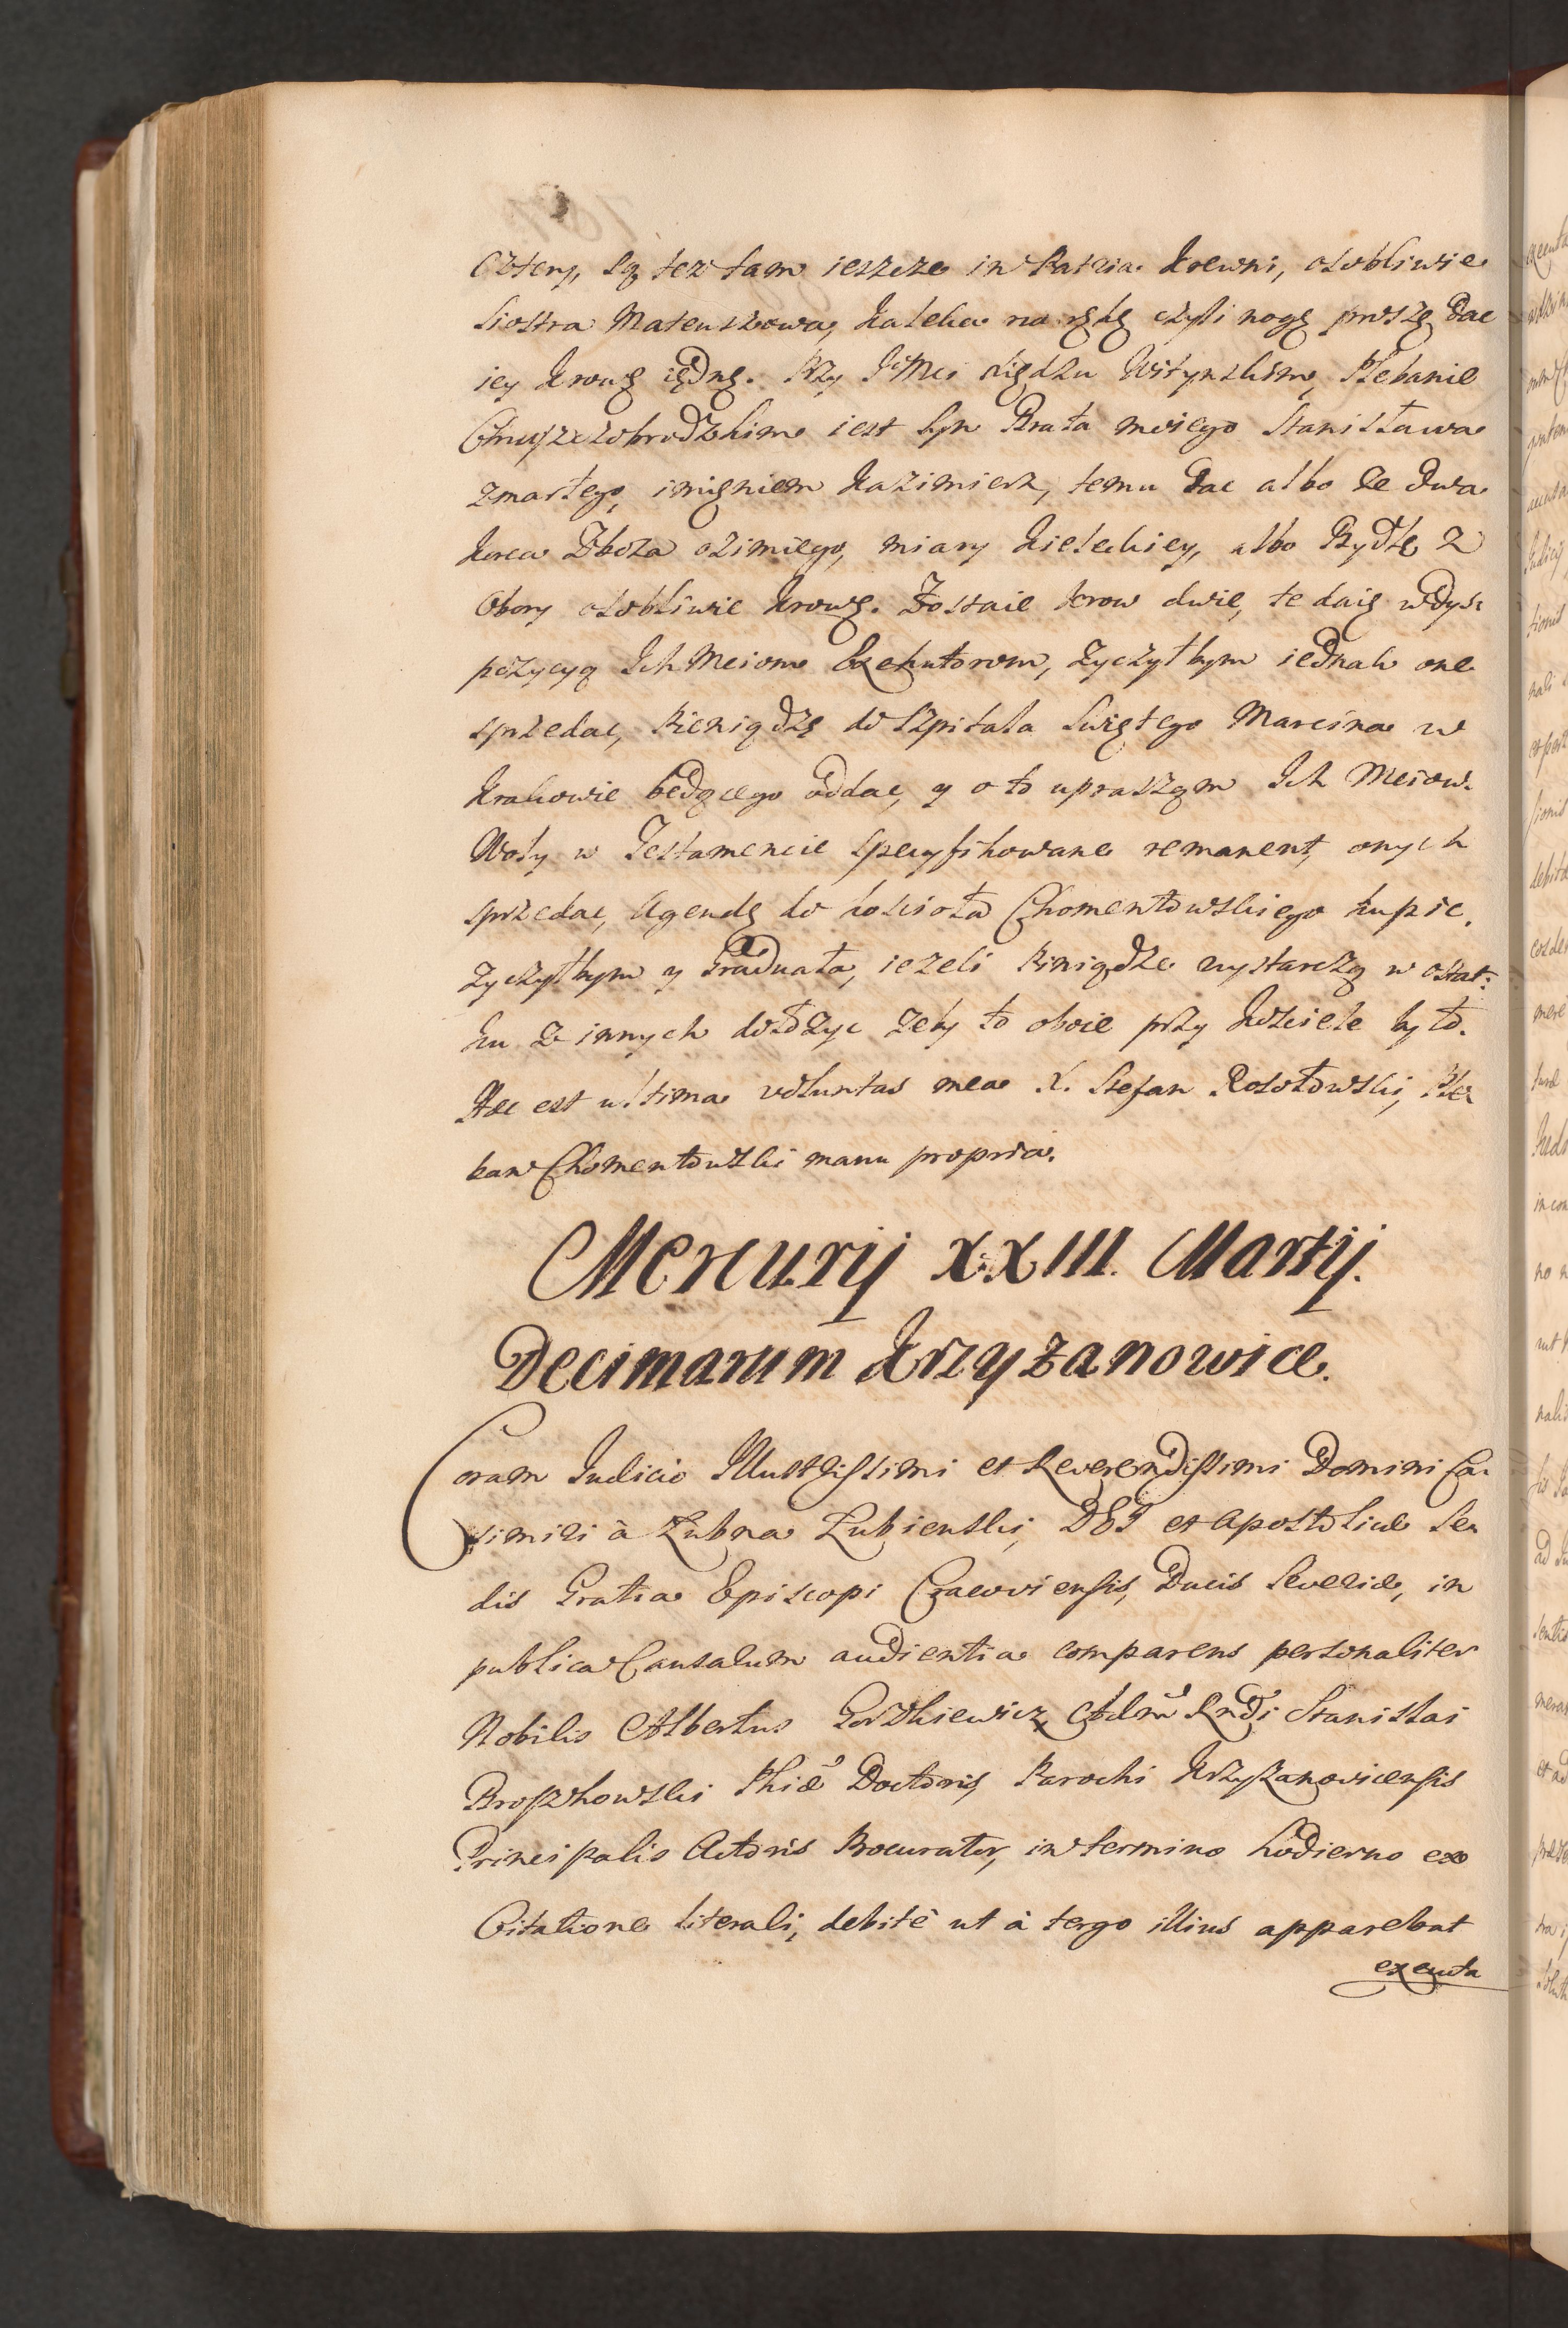 cztery, są tez tam ieszcze in Patria Krewni, osobliwie
Siostra Mateuszowa, kaleka na rękę czyli nogę proszę dac
iey Krowę iędnę. Przy JcMci Xiędzu Witynskim, Plebanie
Chruszczobrodzkim iest Syn Brata moiego Stanisława
zmarłego, imięniem Kazimierz, temu dac albo ze dwa
Korca Zboza ozimiego, miary Kieleckiey, albo Bydlę z
Obory osobliwie Krowę. Zostaie krow dwie, te daię w dys:
pozycyą Ich Mciom Exekutorom, zyczyłbym iednak one
sprzedac, Pieniądzę do Szpitala Swiętego Marcina w
Krakowie będącego oddac, y o to upraszam Ich Mciow.
Woły w Testamencie specyfikowane remanent, onych
sprzedac, Agendę do koscioła Chomentowskiego kupic,
zyczyłbym y Graduała, iezeli Piniądze wystarczą w ostat:
ku z innych dołozyc zeby to oboie przy Kosciele było.
Hæc est ultima voluntas mea X. Stefan Rosołowski, Ple:
ban Chomentowski manu propria.
Mercurij XXIII. Martij.
Decimarum Krzyzanowice.
Coram Iudicio Illustrissimi et Reverendissimi Domini Ca:
simiri à Łubna Łubienski, DEI et Apostolicæ Se:
dis Gratia Episcopi Cracoviensis, Ducis Severiæ, in
publica Causarum audientia comparens personaliter
Nobilis Albertus Gorzkiewicz, Adm̃ Rñdi Stanislai
Broszkowski Phiæ Doctoris, Parochi Krzyzanovicensis
Principalis Actoris Procurator, in termino hodierno ex
Citatione literali, debitè ut à tergo illius apparebat
executa